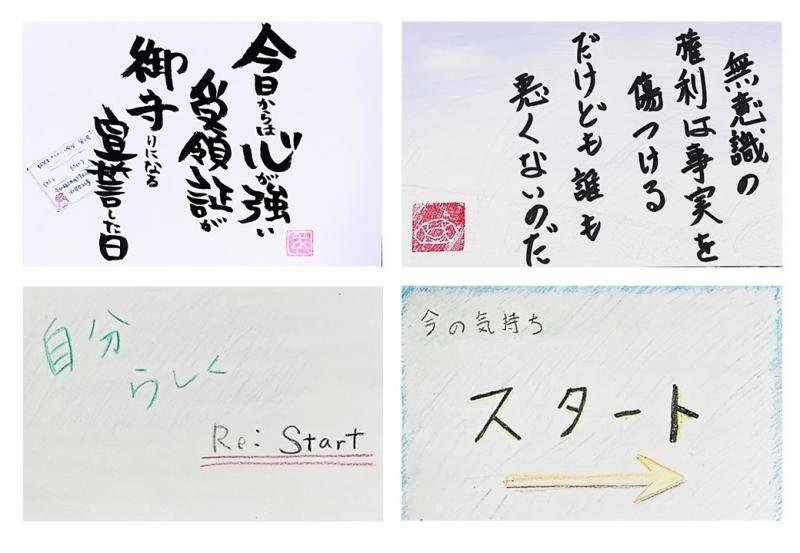 今日からは心が強い
受領証が
御守りになる
宣誓した日
無意識の
権利は事実を
傷つける
だけども誰も
悪くないのだ
自分
らしく
Re: Start
今の気持ち
スタート